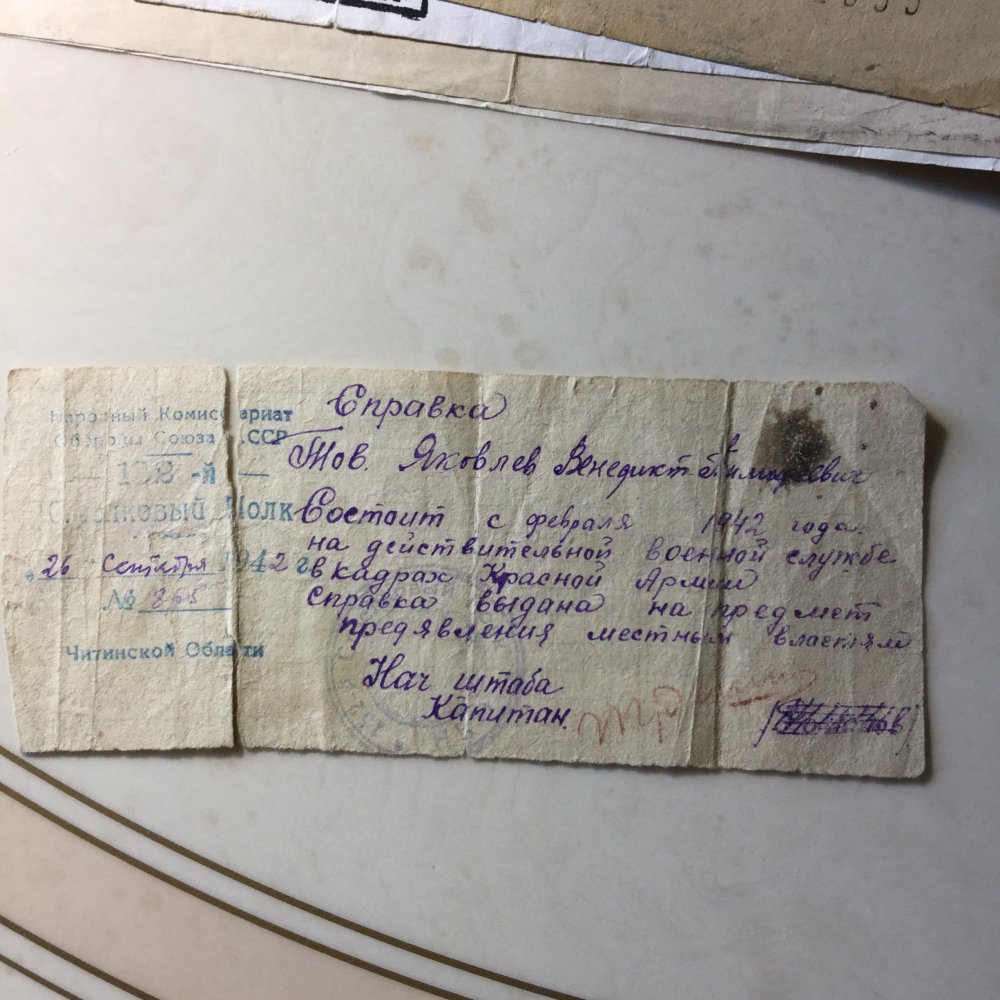 Народный Комиссариат
Обороны Союза ССР
-й
Стрелковый Полк
„26 Сентября 1942 г.
№ 865
Читинской Области
Справка
Тов. Яковлев Венедикт
Состоит с февраля 1942 года.
на действительной военной службе
в кадрах Красной Армии
справка выдана на предмет
предявления местным властям
Нач штаба
Капитан.